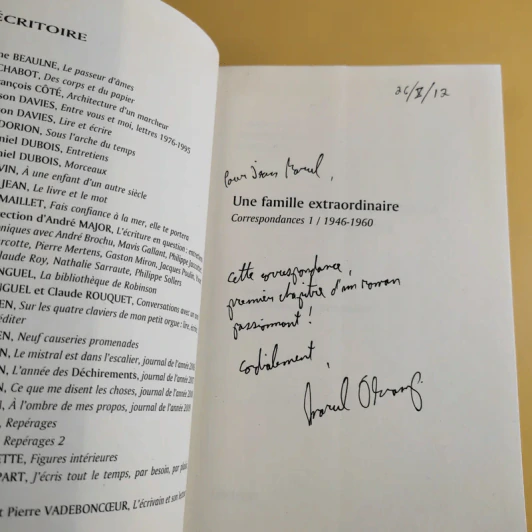 ÉCRITOIRE
ne BEAULNE, Le passeur d'âmes
CHABOT, Des corps et du papier
ançois CÔTÉ, Architecture d'un marcheur
son DAVIES, Entre vous et moi, lettres 1976-1995
on DAVIES, Lire et écrire
DORION, Sous l'arche du temps
niel DUBOIS, Entretiens
niel DUBOIS, Morceaux
VIN, À une enfant d'un autre siècle
JEAN, Le livre et le mot
MAILLET, Fais confiance à la mer, elle te portera
ection d'André MAJOR, L'écriture en question : entretiens
oniques avec André Brochu, Mavis Gallant, Philippe
arcotte, Pierre Mertens, Gaston Miron, Jacques Poulin,
laude Roy, Nathalie Sarraute, Philippe Sollers
NGUEL, La bibliothèque de Robinson
NGUEL et Claude ROUQUET, Conversations avec un
EN, Sur les quatre claviers de mon petit orgue : lire,
éditer
EN, Neuf causeries promenades
N, Le mistral est dans l'escalier, journal de l'année
N, L'année des Déchirements, journal de l'année
N, Ce que me disent les choses, journal de l'année
À l'ombre de mes propos, journal de l'année
, Repérages
Repérages 2
ETTE, Figures intérieures
PART, J'écris tout le temps, par besoin, par
t Pierre VADEBONCŒUR, L'écrivain et son
26/X/12
Pour Jean Marcel,
Une famille extraordinaire
Correspondances 1 / 1946-1960
cette correspondance,
premier chapitre d'un roman
passionnant !
Cordialement,
Marcel